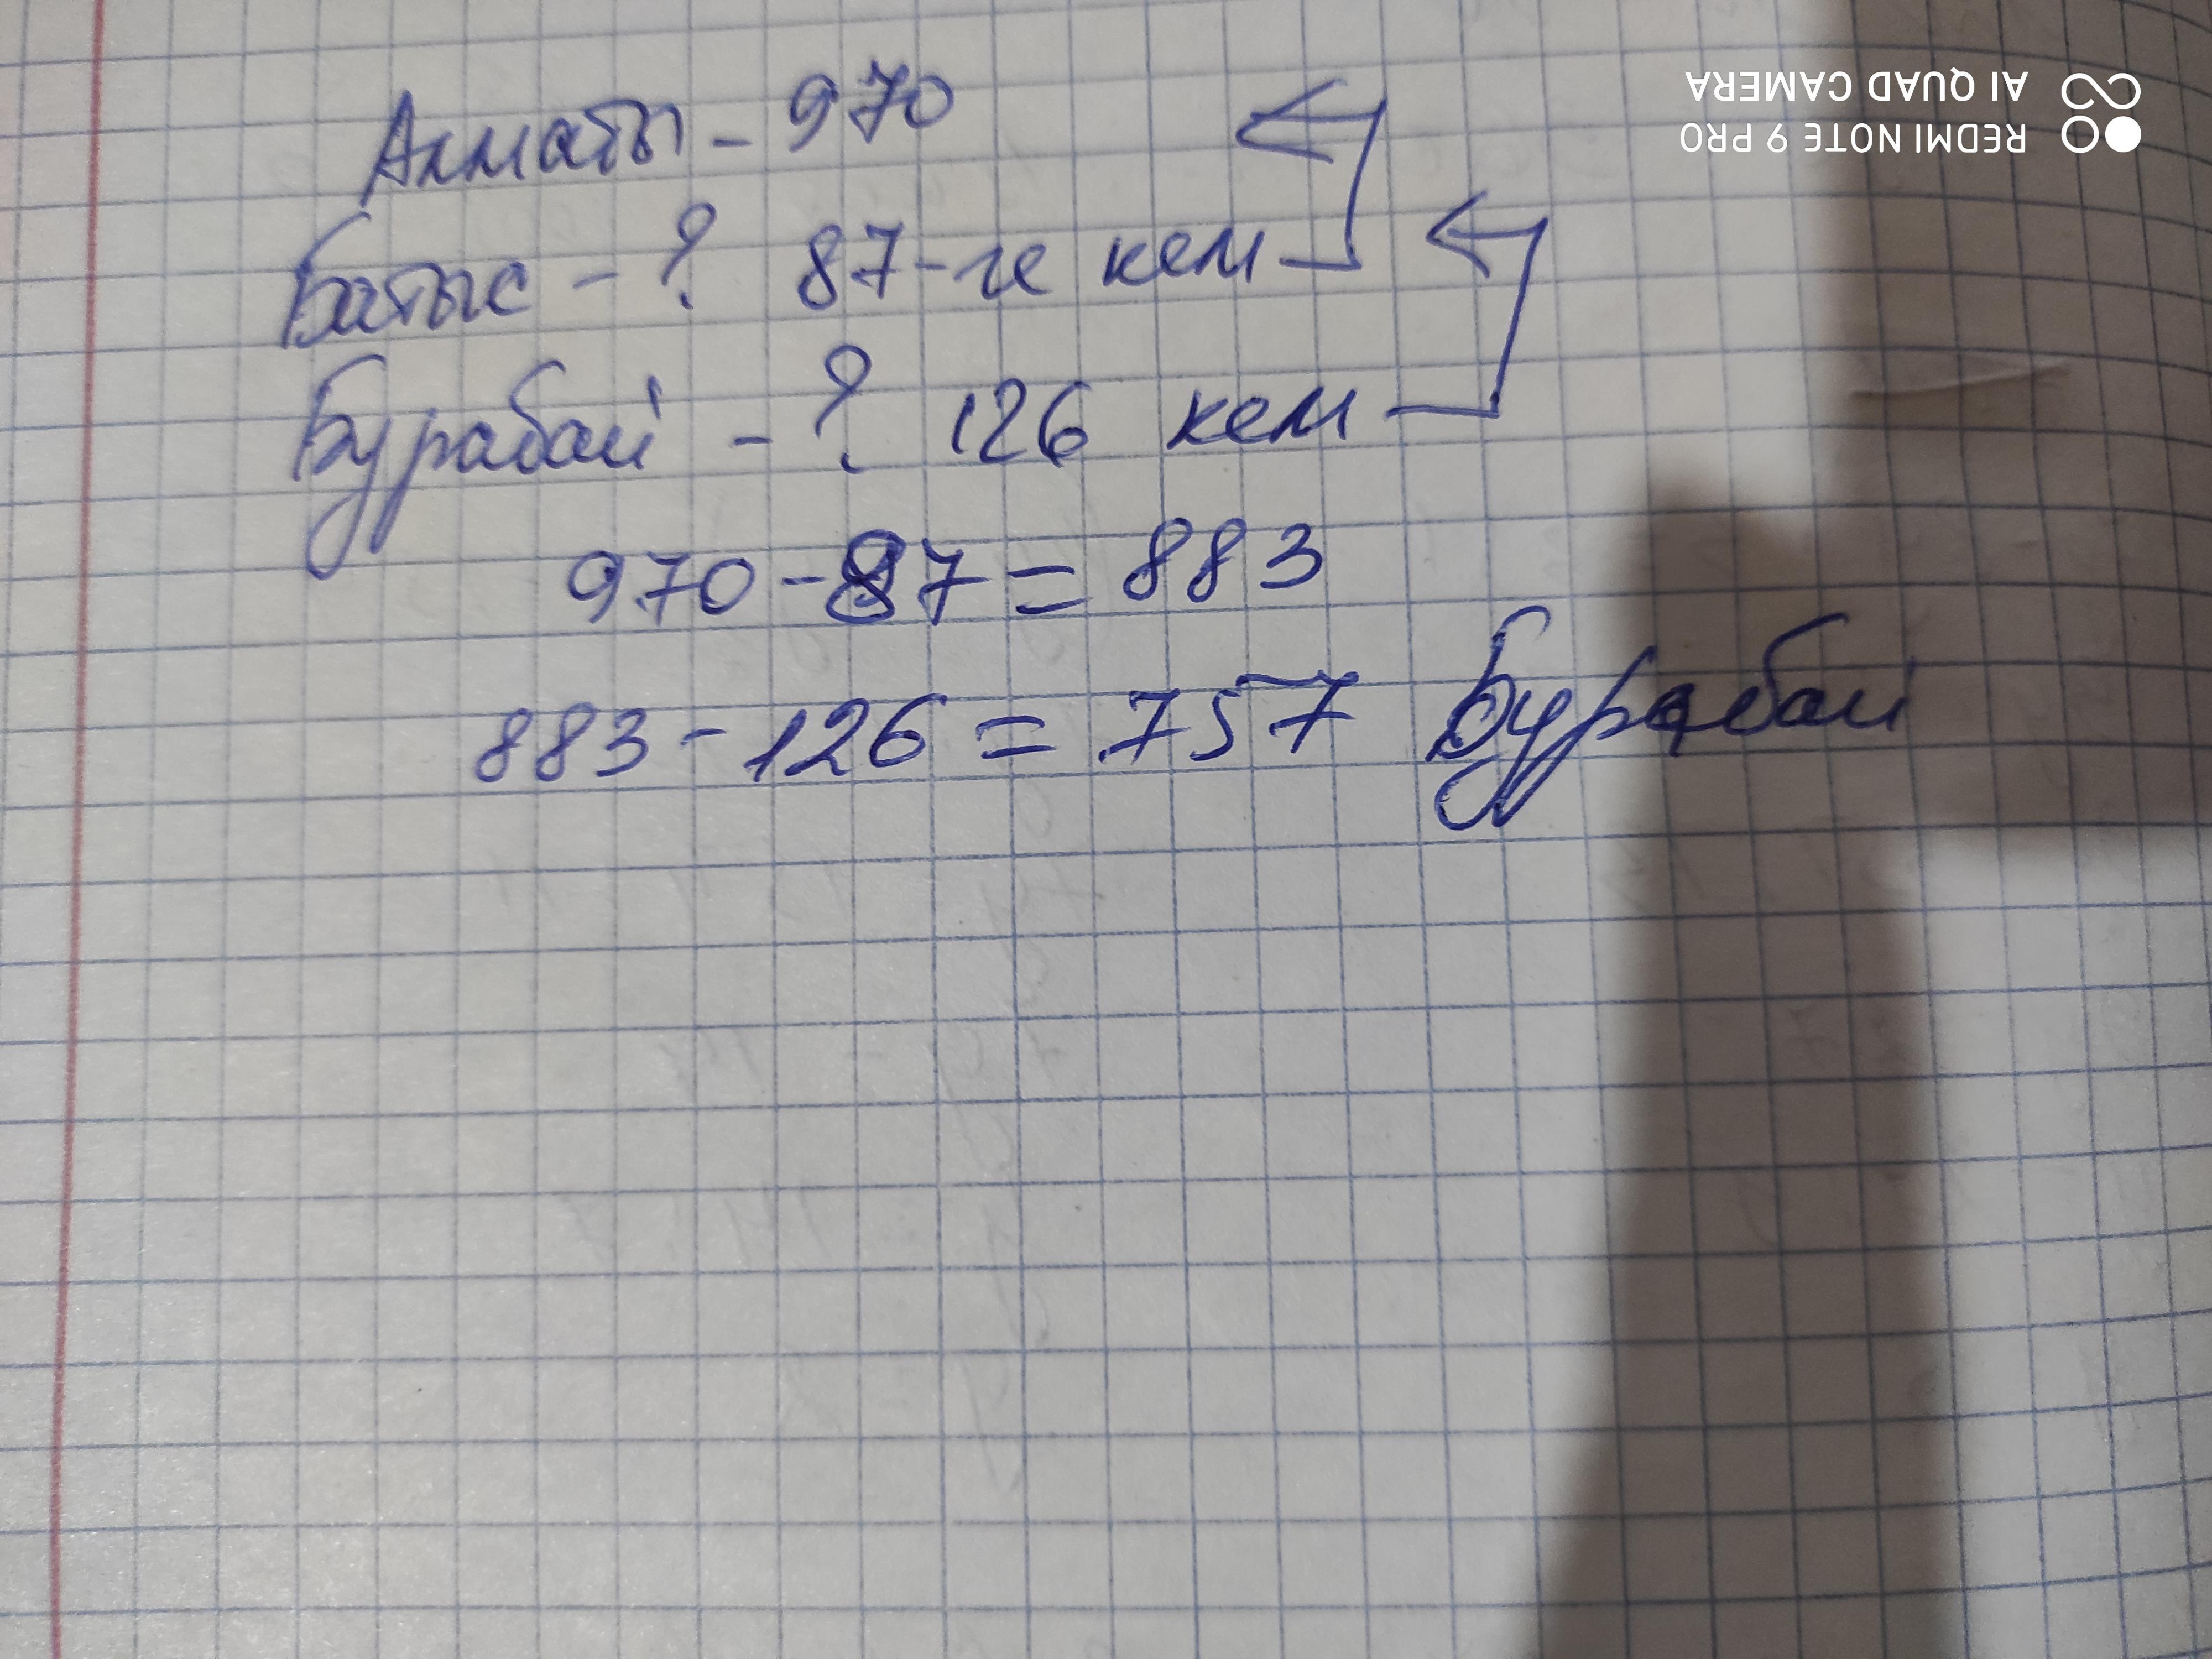 Алматы - 970
Батыс - ? 87-ге кем
Бурабай - ? 126 кем
970 - 87 = 883
883 - 126 = 757 Бурабай
REDMI NOTE 9 PRO
AI QUAD CAMERA